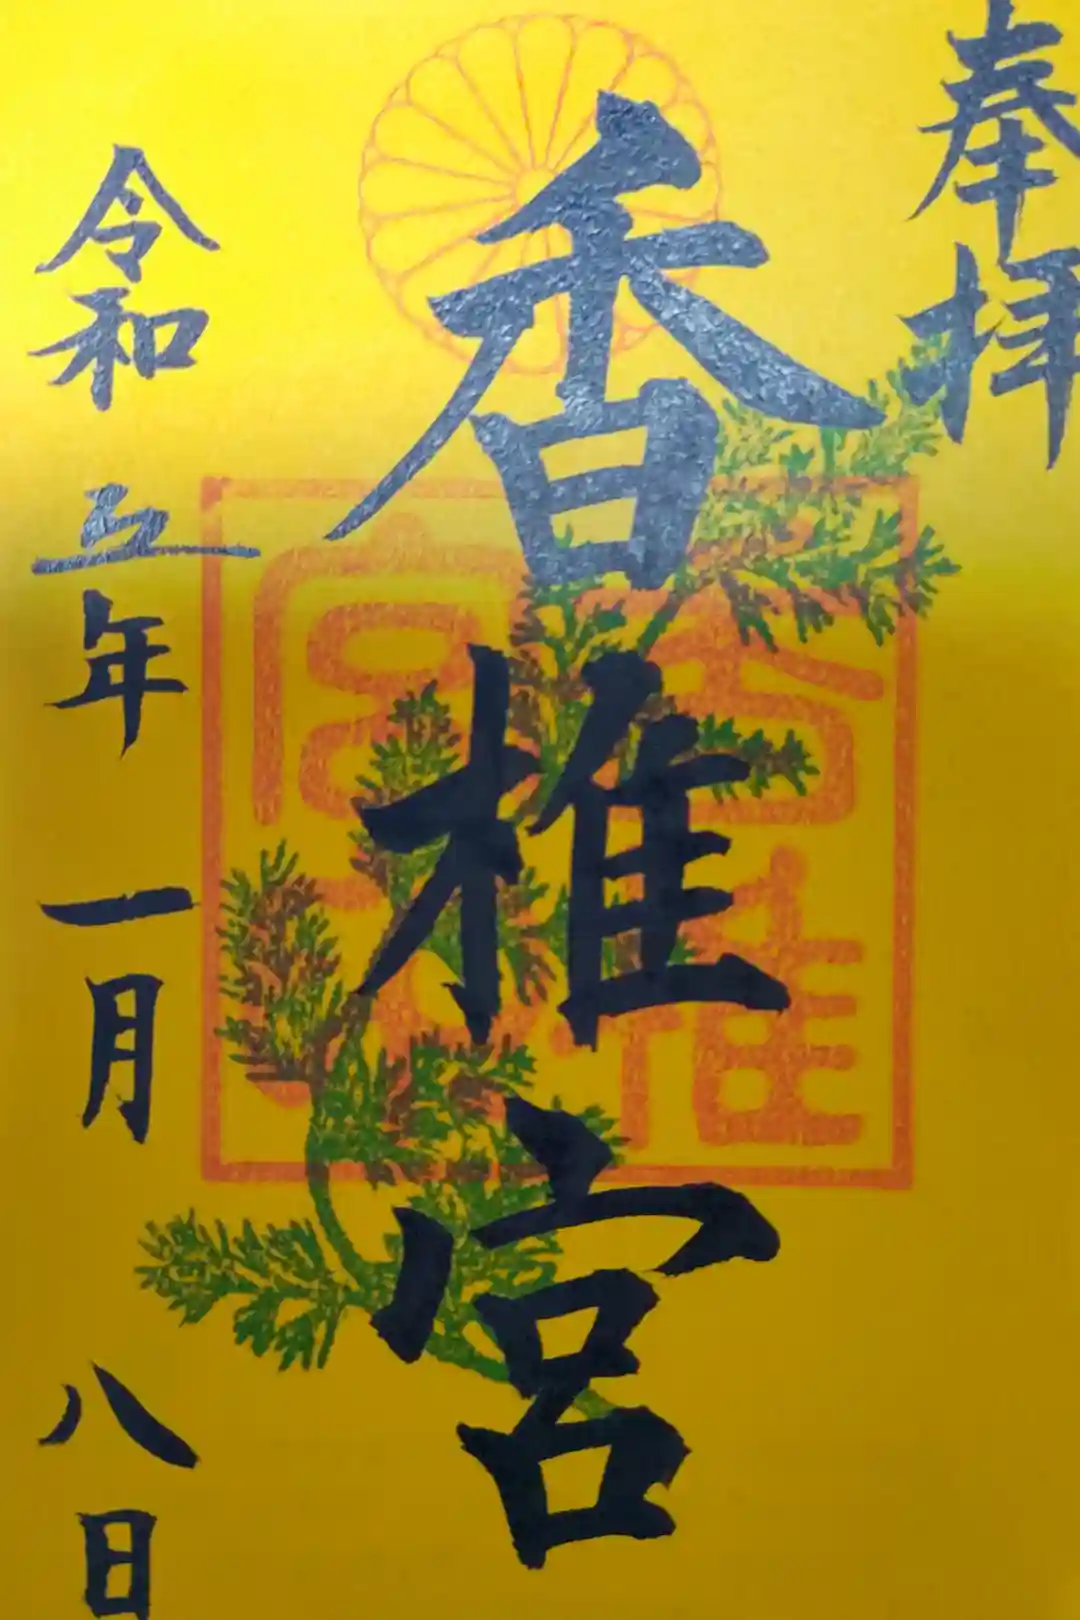 奉拝
香椎宮
令和五年一月八日
香椎宮